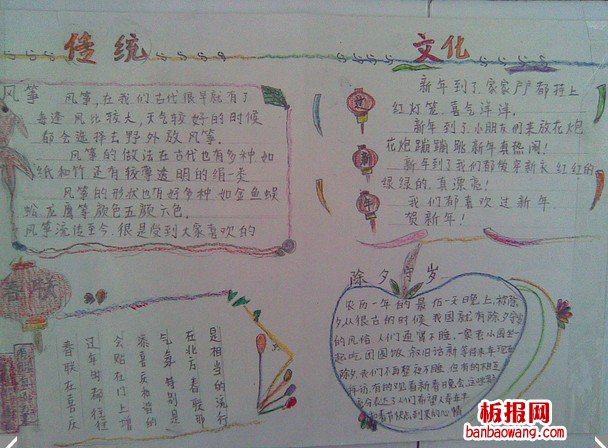 传统
文化
风筝
风筝,在我们古代很早就有了
每逢风比较大,天气较好的时候
都会选择去野外放风筝。
风筝的做法在古代也有多种如
纸和竹还有极薄透明的绢一类
风筝的形状也有好多种如金鱼蜈
蚣龙鹰等颜色五颜六色。
风筝流传至今,很是受到大家喜欢的
过
新
年
新年到了家家户户都持上
红灯笼,喜气洋洋。
新年到了小朋友们来放花炮
花炮蹦蹦跳新年真热闹!
新年到了我们都爱穿新衣红红的
绿绿的,真漂亮!
我们都喜欢过新年
贺新年!
春联
春联在喜庆
过年时都往往
会贴在门上增
添喜庆和谐的
气氛特别是
在北方春联那
是相当的流行
除夕守岁
农历一年的最后一天晚上,被称除
夕从很古的时候我国就有除夕守岁
的风俗人们通宵不睡,一家老小团坐一
起吃团圆饭,叙旧话新
板报网
banbaowang.com